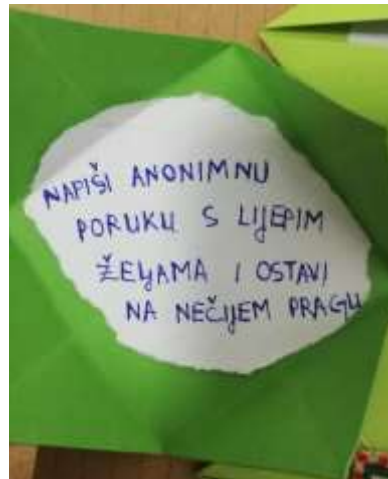 NAPIŠI ANONIMNU
PORUKU S LIJEPIM
ŽELJAMA I OSTAVI
NA NEČIJEM PRAGU